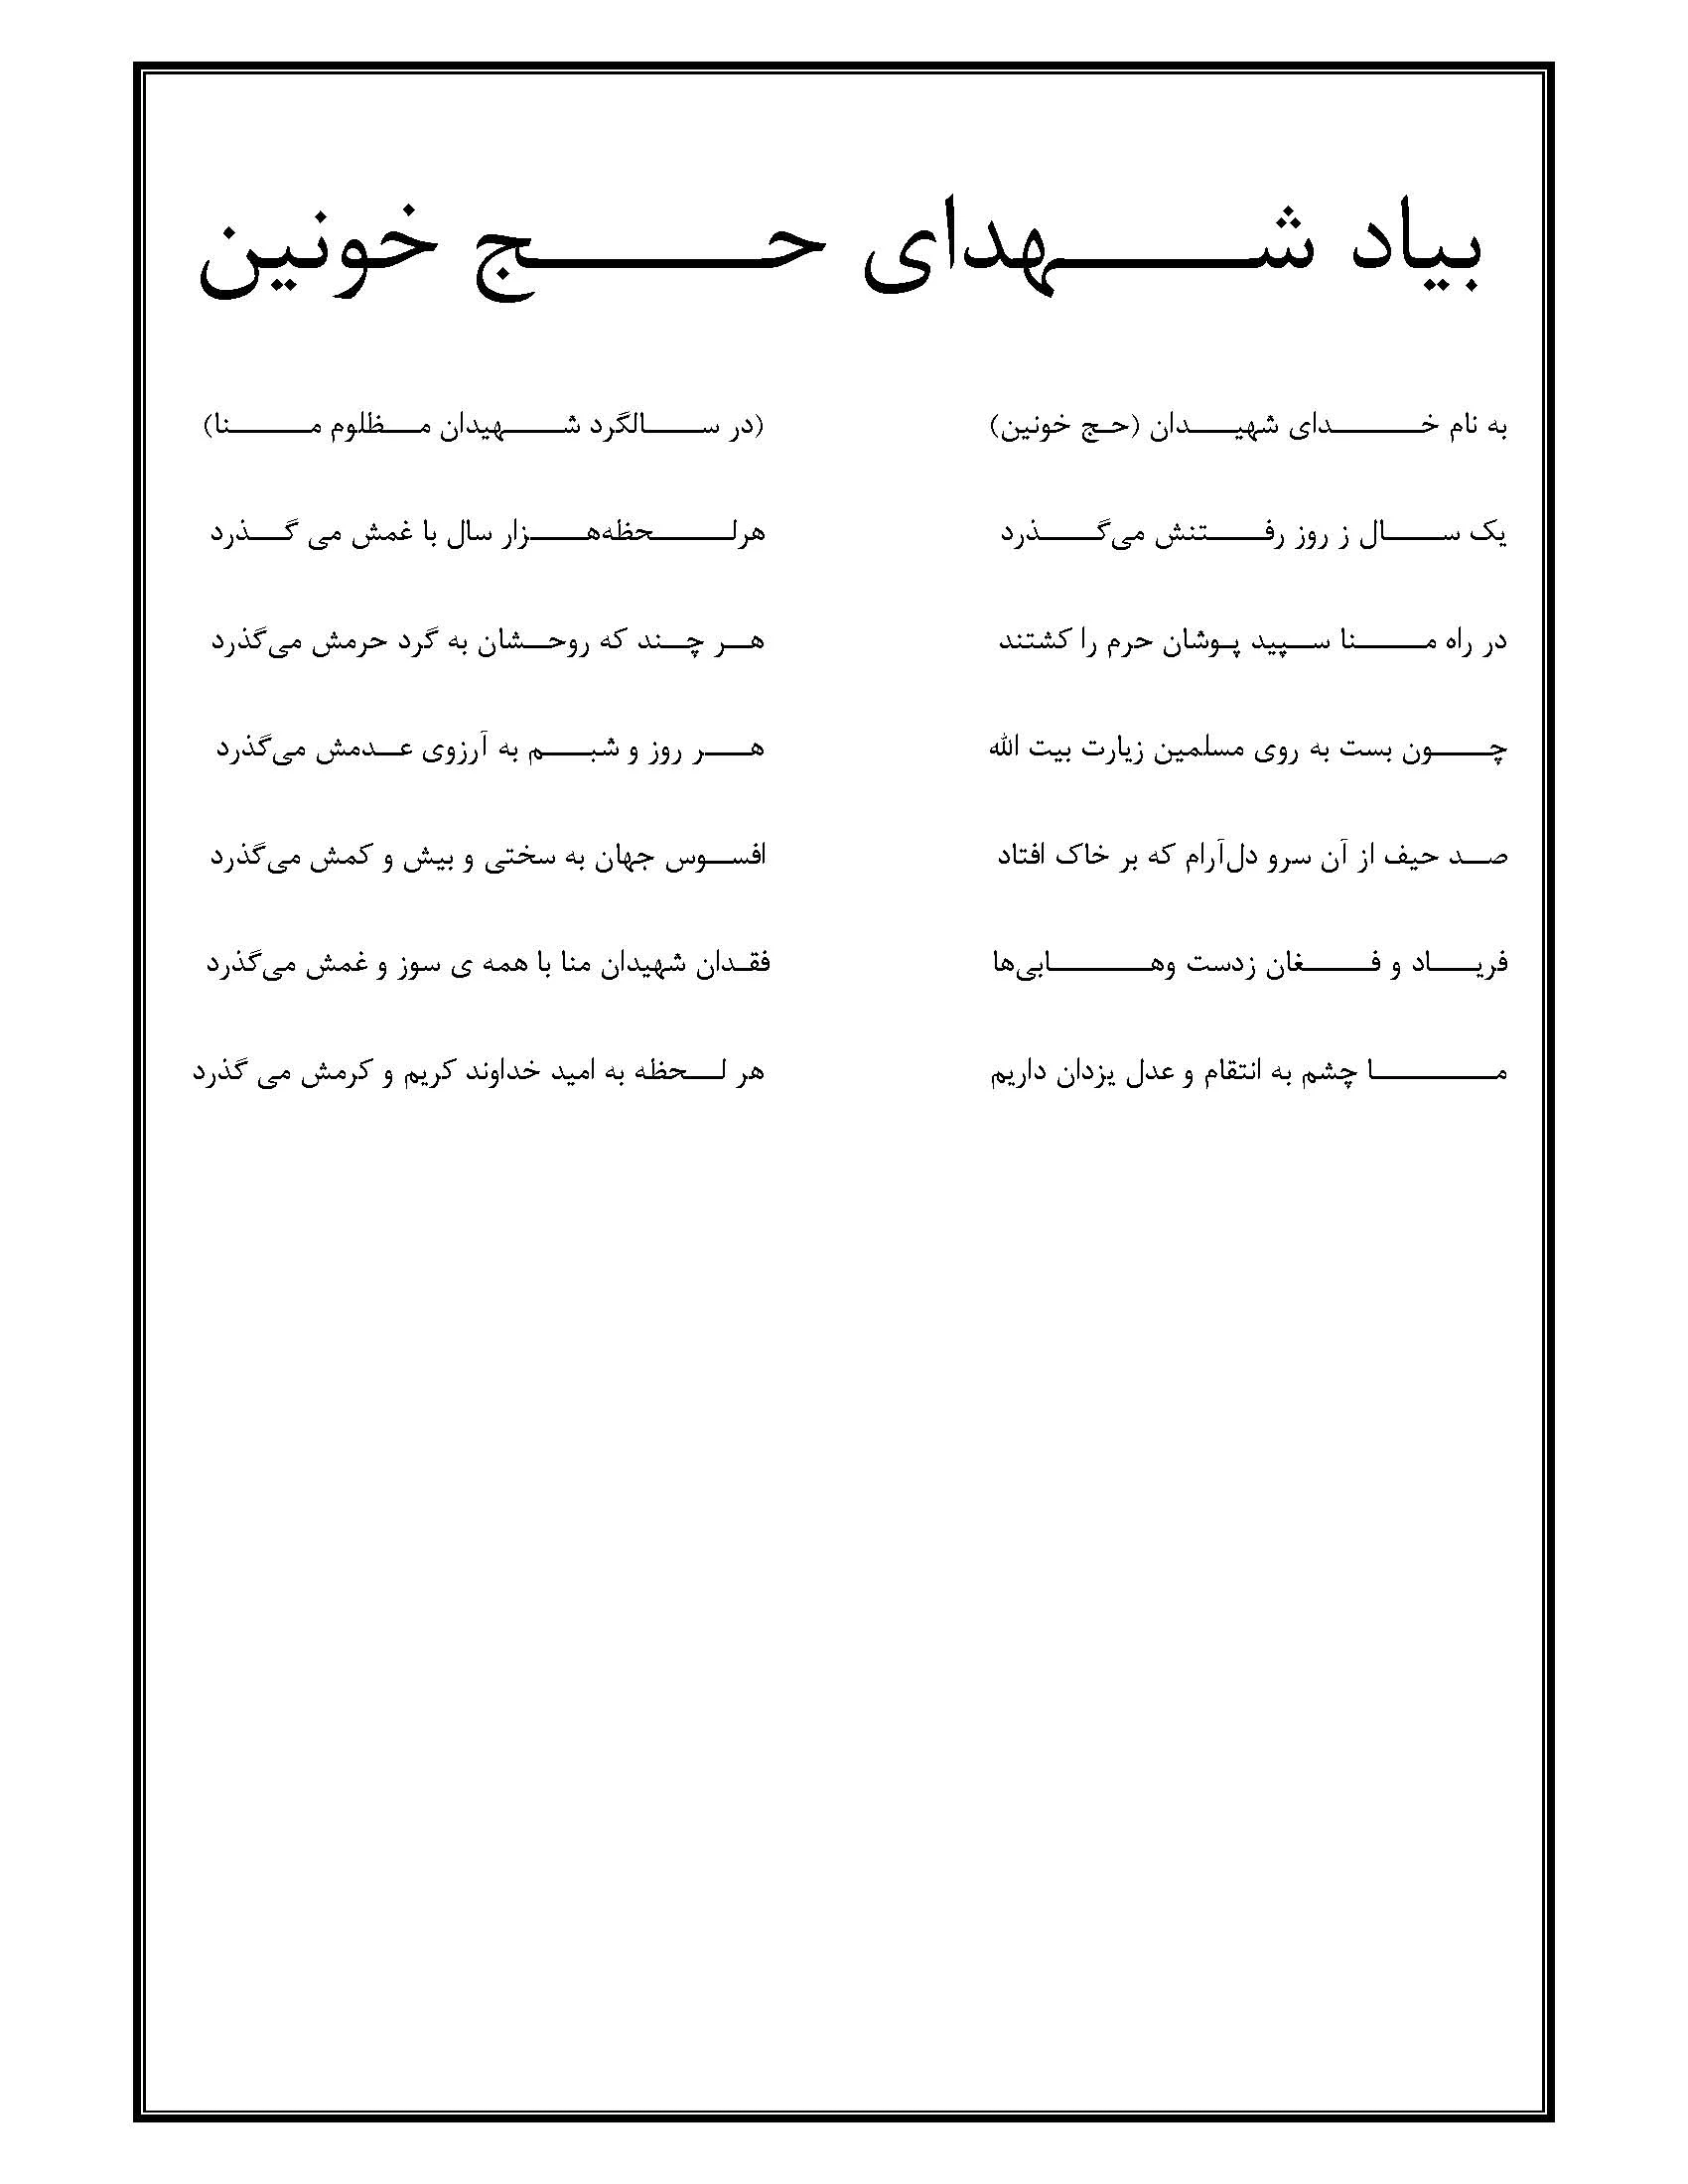 بیاد شهدای حج خونین
به نام خدای شهیدان (حج خونین) (در سالگرد شهیدان مظلوم منا)
یک سال ز روز رفتنش می‌گذرد هرلحظه‌هزار سال با غمش می گذرد
در راه منا سپید پوشان حرم را کشتند هر چند که روحشان به گرد حرمش می‌گذرد
چون بست به روی مسلمین زیارت بیت الله هر روز و شبم به آرزوی عدمش می‌گذرد
صد حیف از آن سرو دل‌آرام که بر خاک افتاد افسوس جهان به سختی و بیش و کمش می‌گذرد
فریاد و فغان زدست وهابی‌ها فقدان شهیدان منا با همه ی سوز و غمش می‌گذرد
ما چشم به انتقام و عدل یزدان داریم هر لحظه به امید خداوند کریم و کرمش می گذرد